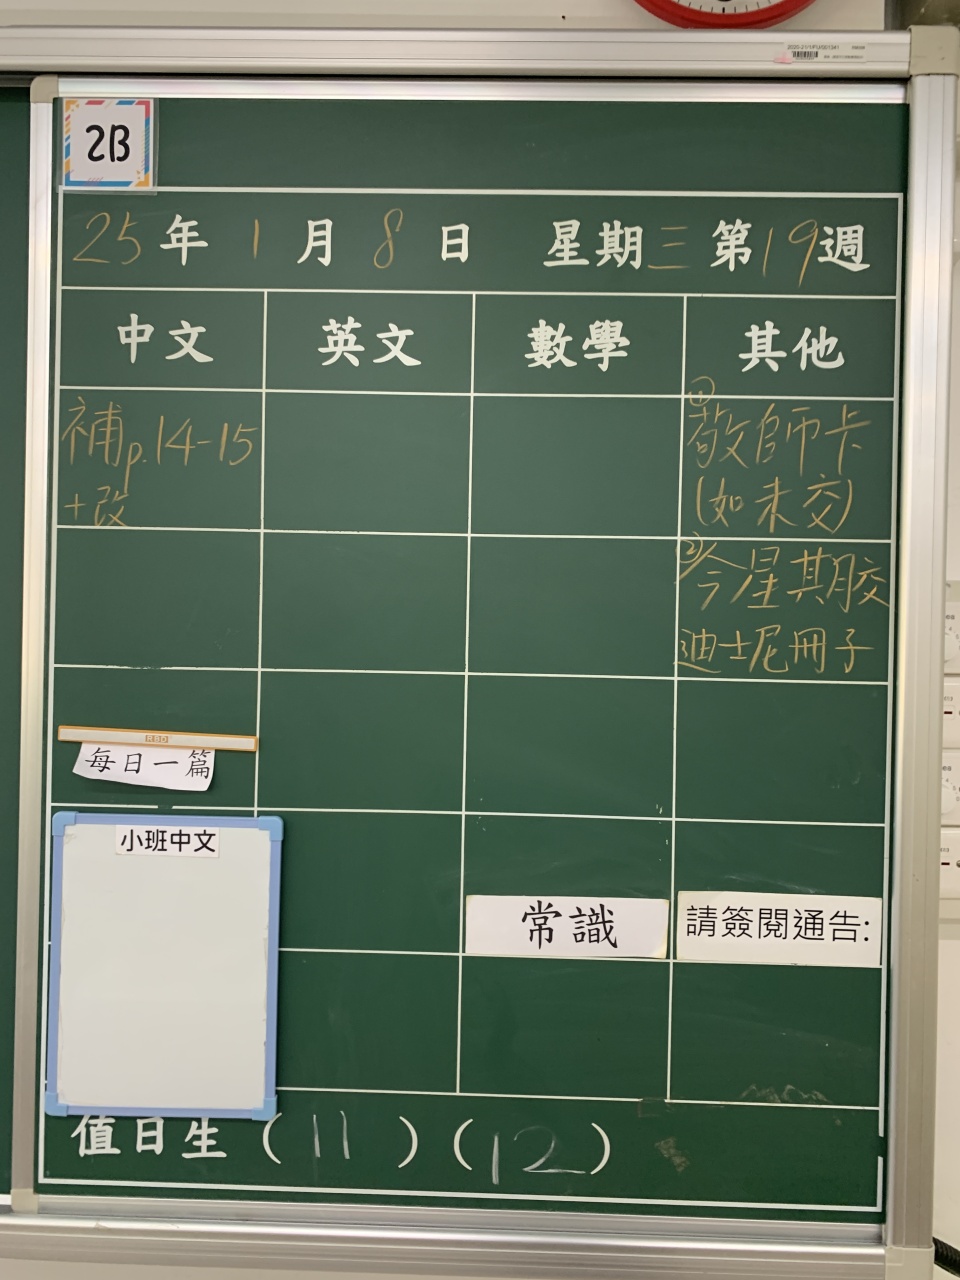 2B
25年1月8日 星期三 第19週
中文 英文 數學 其他
補p.14-15
+改
①
敬師卡
(如未交)
②今星期交
迪士尼冊子
RBD
每日一篇
小班中文
常識
請簽閱通告:
值日生(11)(12)